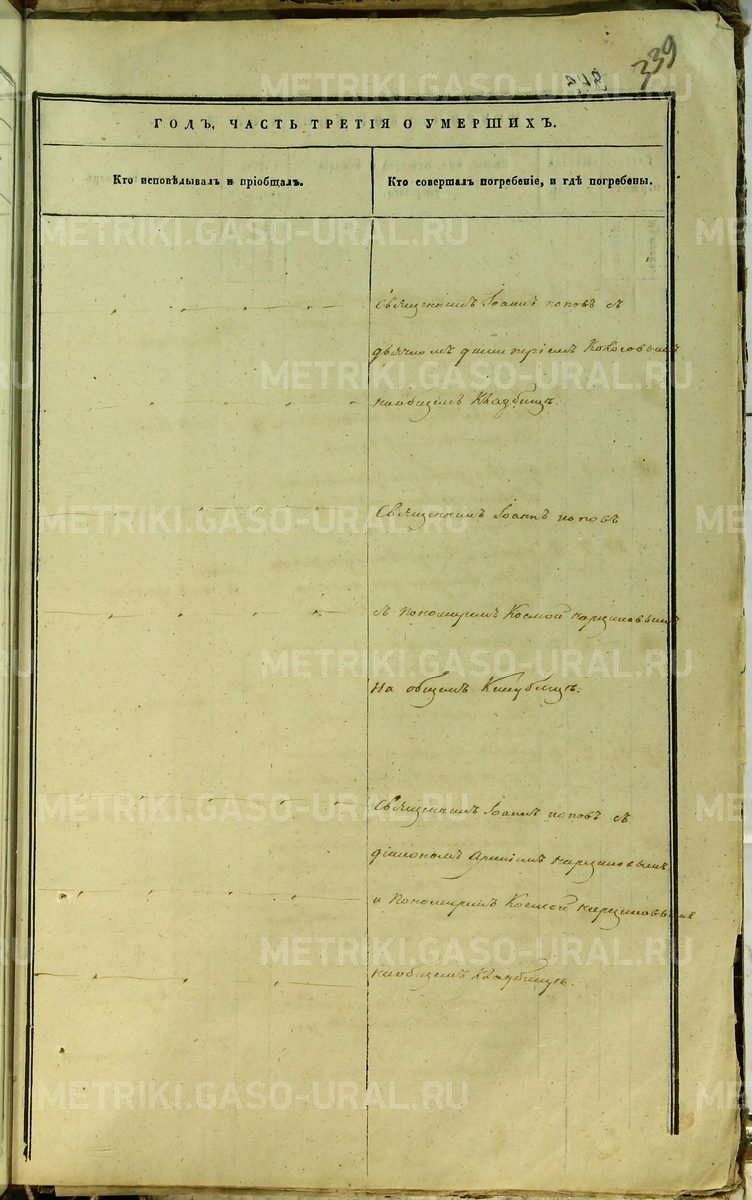 339
ГОДЪ, ЧАСТЬ ТРЕТІЯ О УМЕРШИХЪ.
Кто исповѣдывалъ и пріобщалъ.
Кто совершалъ погребеніе, и гдѣ погребены.
Священникъ Іоаннъ поповъ съ
дьячкомъ димитріемъ Кокосовымъ
наобщемъ Кладбищѣ.
Священникъ Іоаннъ поповъ
съ Пономаремъ Космой карзиновымъ
На общемъ Кладбищѣ.
Священникъ Іоаннъ поповъ съ
діакономъ карзиновымъ
и Пономаремъ Космой карзиновымъ
наобщемъ Кладбищѣ.
METRIKI.GASO-URAL.RU